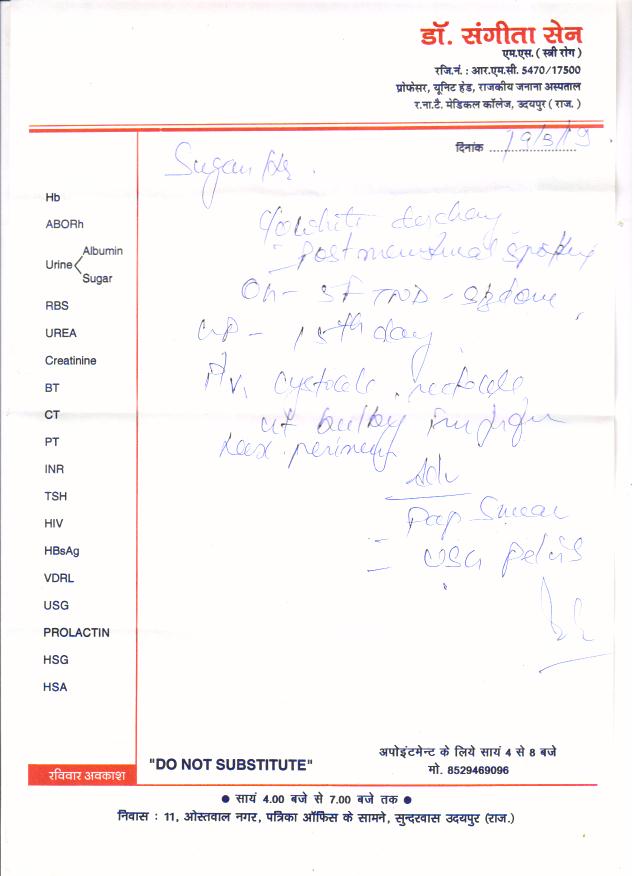 डॉ. संगीता सेन
एम.एस. ( स्त्री रोग )
रजि.नं. : आर.एम.सी. 5470/17500
प्रोफेसर, यूनिट हेड, राजकीय जनाना अस्पताल
र.ना.टै. मेडिकल कॉलेज, उदयपुर ( राज. )
दिनांक 19/3/19
Hb
ABORh
Urine Albumin
Sugar
RBS
UREA
Creatinine
BT
CT
PT
INR
TSH
HIV
HBsAg
VDRL
USG
PROLACTIN
HSG
HSA
c/o white
- Post menstrual spotting
FTND
15th day
cystocele, rectocele
ut bulky
lax perineum
Adv
Pap Smear
- USG Pelvis
रविवार अवकाश
"DO NOT SUBSTITUTE"
अपोइंटमेन्ट के लिये सायं 4 से 8 बजे
मो. 8529469096
● सायं 4.00 बजे से 7.00 बजे तक ●
निवास : 11, ओस्तवाल नगर, पत्रिका ऑफिस के सामने, सुन्दरवास उदयपुर (राज.)